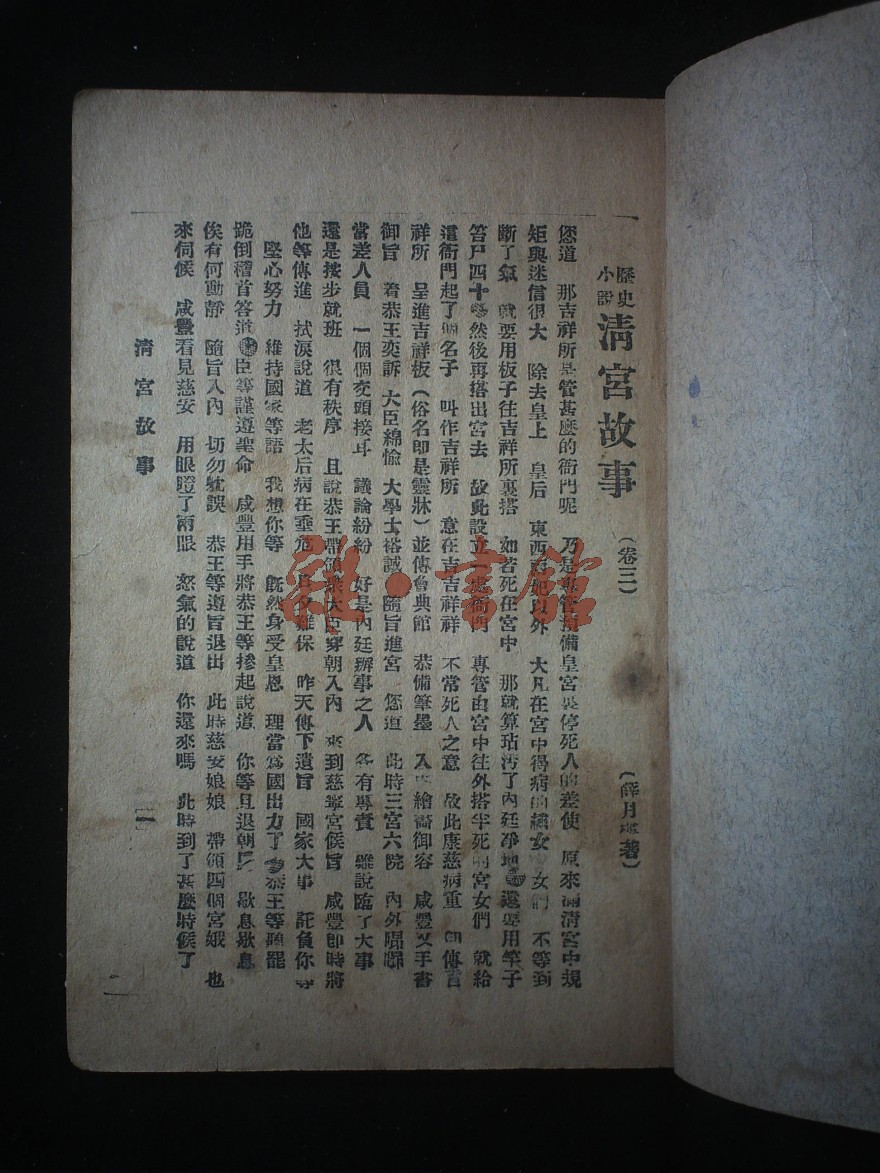 歷史
小說
清宮故事
(卷三)
(薛月樵著)
您道 那吉祥所是管甚麽的衙門呢 乃是專管預備皇宮裏停死人的差使 原來淸宮中規
矩與迷信很大 除去皇上 皇后 東西 以外 大凡在宮中得病的 女 女們 不等到
斷了氣 就要用板子往吉祥所裏搭 如若死在宮中 那就算玷汚了內廷凈地 還要用筆子
笞尸四十 然後再搭出宮去 故此設立一處衙門 專管由宮中往外搭半死 宮女們 就給
這衙門起了個名子 叫作吉祥所 意在吉吉祥祥 不常死人之意 故此康慈病重 卽傳吉
祥所 呈進吉祥板(俗名即是靈牀)並傳會典館 恭備筆墨 入 繪畵御容 咸豐又手書
御旨 着恭王奕訢 大臣綿愉 大學士裕誠 隨旨進宮 您道 此時三宮六院 內外
當差人員 一個個交頭接耳 議論紛紛 好是內廷辦事之人 各有專責 雖說臨了大事
還是按步就班 很有秩序 且說恭王帶領衆大臣穿朝入內 來到慈寧宮候旨 咸豐即時將
他等傳進 拭淚說道 老太后病在垂危 旦夕難保 昨天傳下遺旨 國家大事 託負你等
堅心努力 維持國家等語 我想你等 旣然身受皇恩 理當爲國出力了 恭王等聽罷
跪倒稽首答道 臣等謹遵聖命 咸豐用手將恭王等攙起說道 你等且退朝房 歇息歇息
俟有何動靜 隨旨入內 切勿躭誤 恭王等遵旨退出 此時慈安娘娘 帶領四個宮娥 也
來伺候 咸豐看見慈安 用眼瞪了兩眼 怒氣的說道 你還來嗎 此時到了甚麽時候了
淸宮故事
一
雜·書館